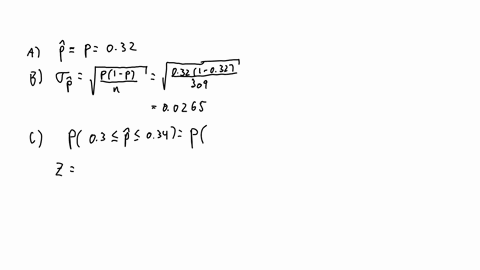 A) p̂ = p = 0.32
B) σp̂ = √(p(1-p)/n) = √(0.32(1-0.32)/309)
= 0.0265
C) P(0.3 ≤ p̂ ≤ 0.34) = P(
Z =